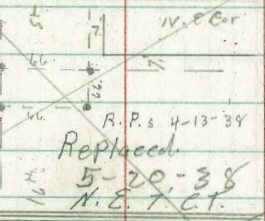 N.E Cor
66.
66.
66.
R.P.s 4-13-38
Replaced
5-20-38
N.E.T.C.T.